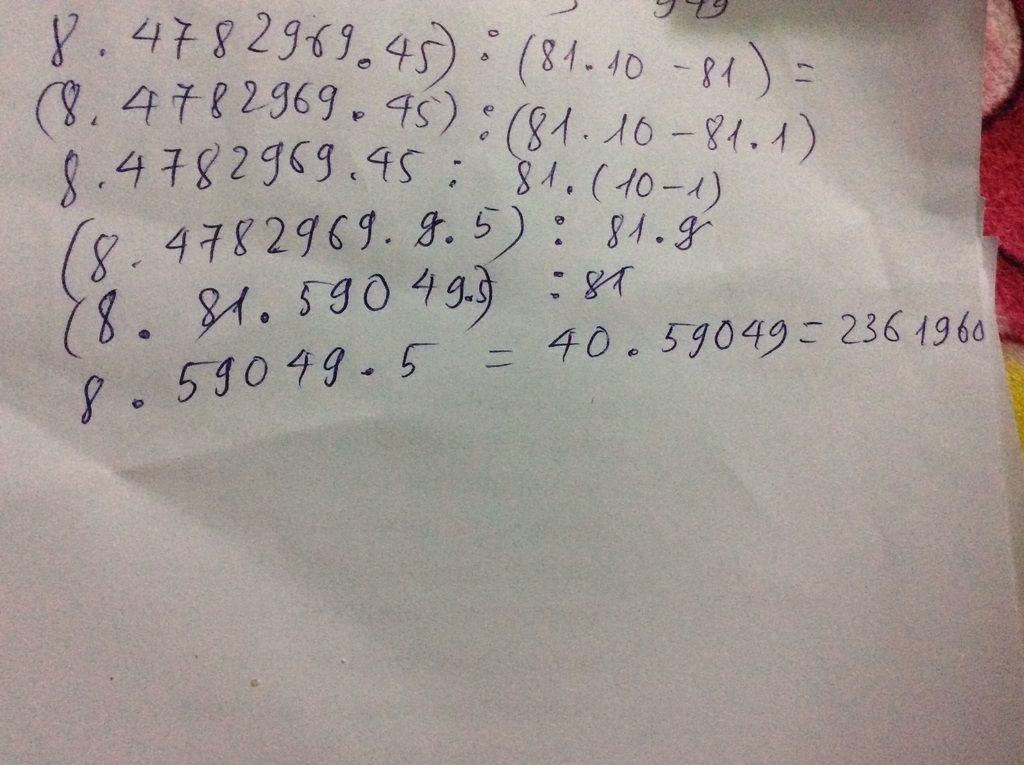 949
8 . 4782969 . 45) : (81.10 - 81) =
(8 . 4782969 . 45) : (81.10 - 81.1)
8 . 4782969 . 45 : 81. (10-1)
(8 . 4782969 . 9 . 5) : 81.9
(8 . 81 . 59049.5) : 81
8 . 59049 . 5 = 40 . 59049 = 2361960